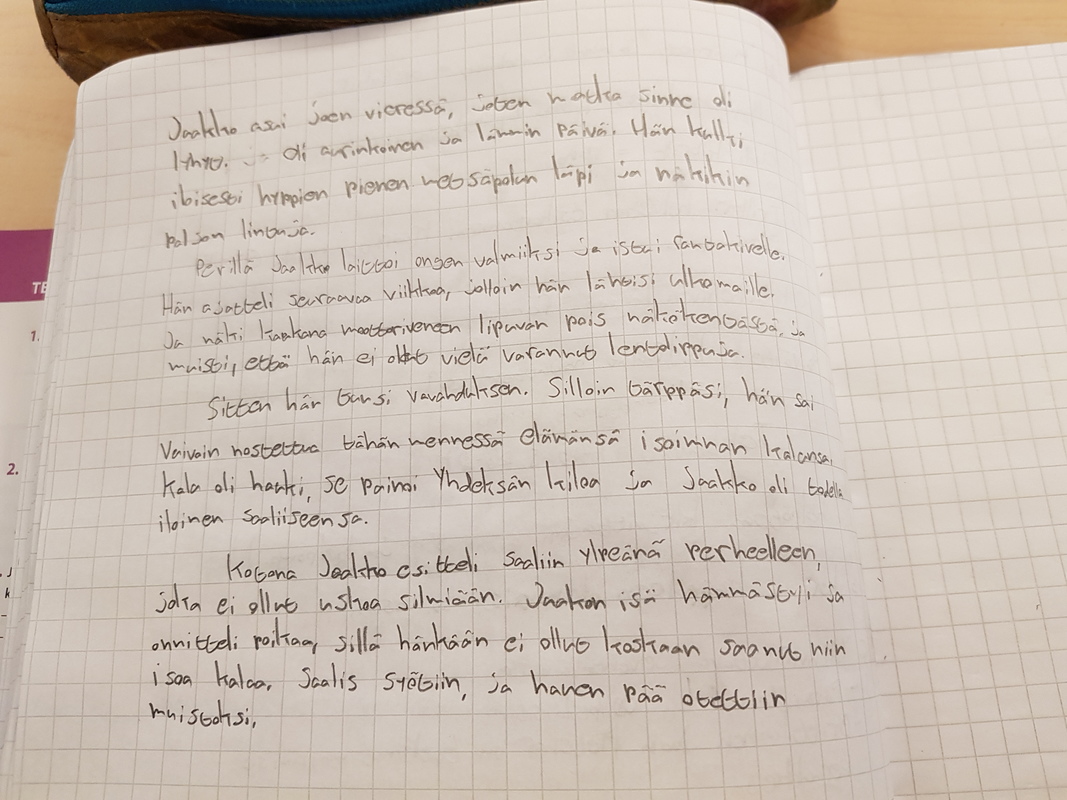 Jaakko asui joen vieressä, joten matka sinne oli
lyhyt. oli aurinkoinen ja lämmin päivä. Hän kulki
iloisesti hyppien pienen metsäpolun läpi ja näkikin
paljon lintuja.
Perillä Jaakko laittoi ongen valmiiksi ja istui rantakivelle.
Hän ajatteli seuraavaa viikkoa, jolloin hän lähtisi ulkomaille.
Ja näki kaukana moottoriveneen lipuvan pois näkökentästä, ja
muisti, että hän ei ollut vielä varannut lentolippuja.
Sitten hän tunsi vavahduksen. Silloin tärppäsi, hän sai
Vaivoin nostettua tähän mennessä elämänsä isoimman kalansa.
Kala oli hauki, se painoi Yhdeksän kiloa ja Jaakko oli todella
iloinen saaliiseensa.
Kotona Jaakko esitteli saaliin ylpeänä perheelleen,
joka ei ollut uskoa silmiään. Jaakon isä hämmästyi ja
onnitteli poikaa, sillä hänkään ei ollut koskaan saanut niin
isoa kalaa. Saalis syötiin, ja hauen pää otettiin
muistoksi.
TE
1.
2.
k